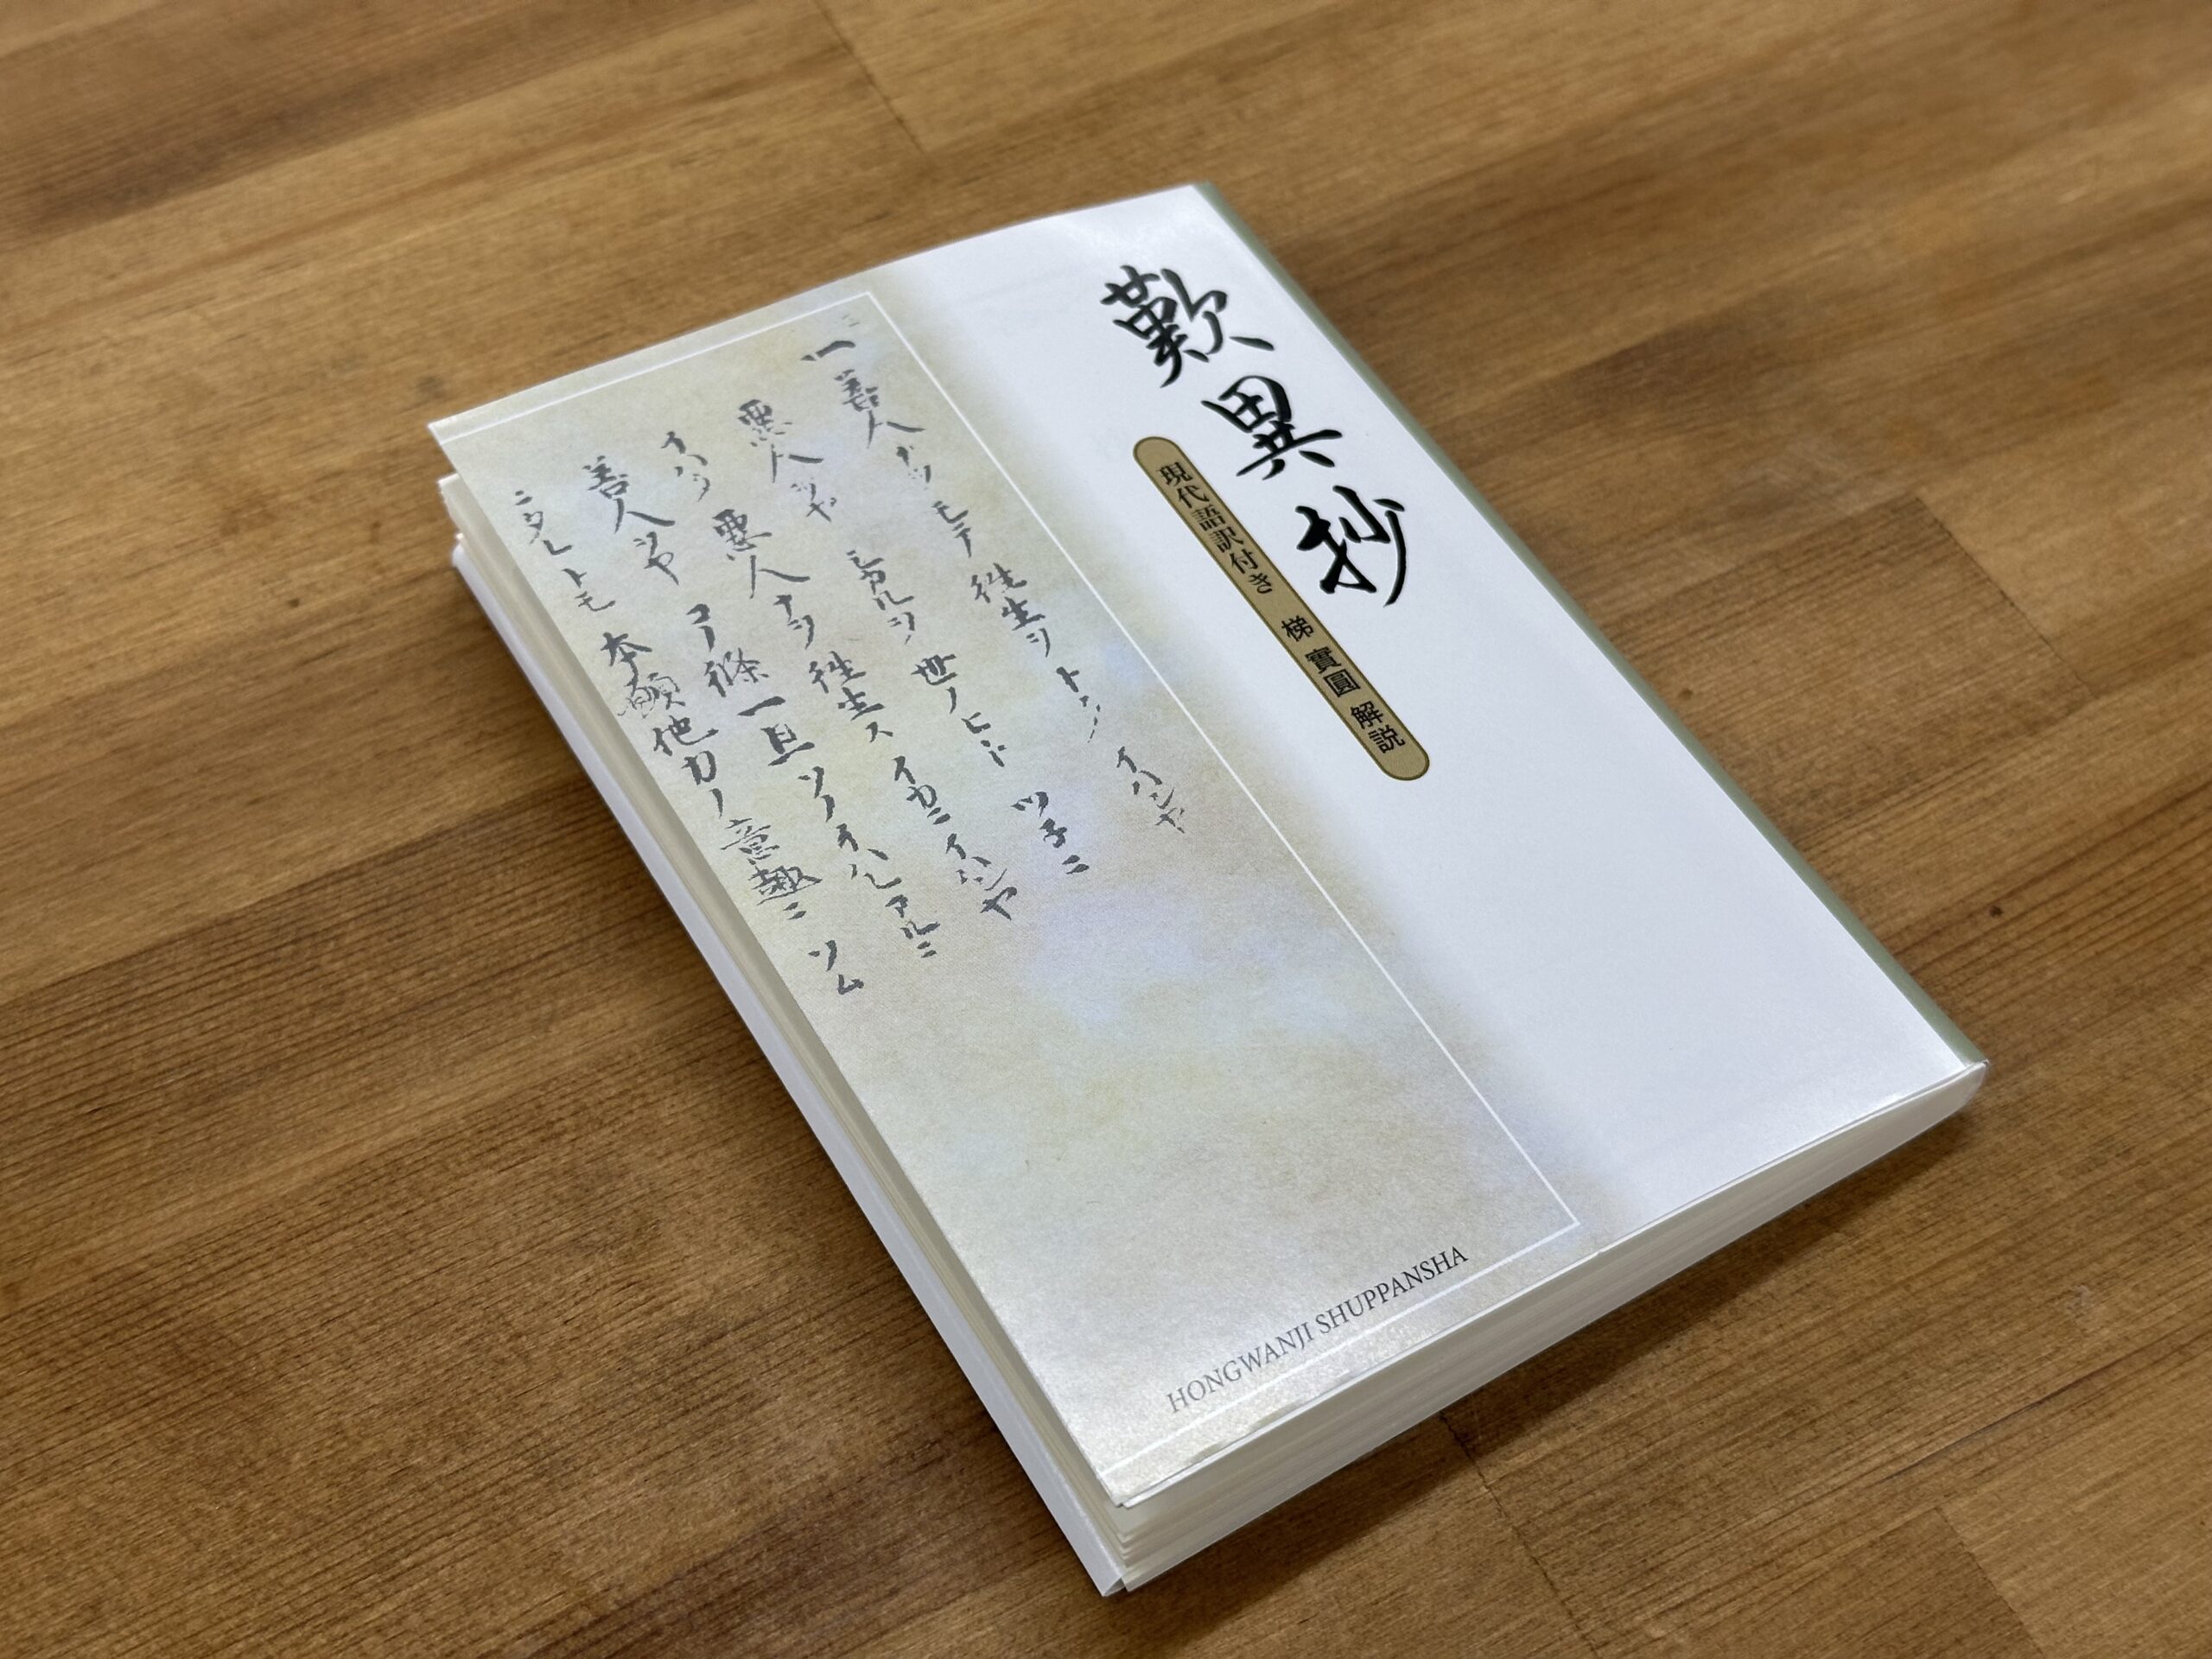 歎異抄
現代語訳付き 梯 實圓 解説
一善人ナヲモテ往生ヲトク イハンヤ
悪人ヲヤ シカルヲ世ノヒト ツ子ニ
イハク 悪人ナヲ往生ス イカニイハンヤ
善人ヲヤ コノ條一旦ソノイハレアルニ
ニタレトモ 本願他力ノ意趣ニソム
HONGWANJI SHUPPANSHA